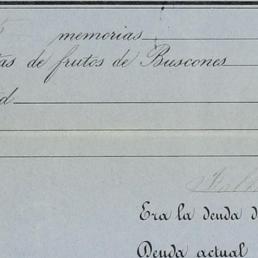 memorias
tas de frutos de Buscones
d
Era la deuda d
Deuda actual